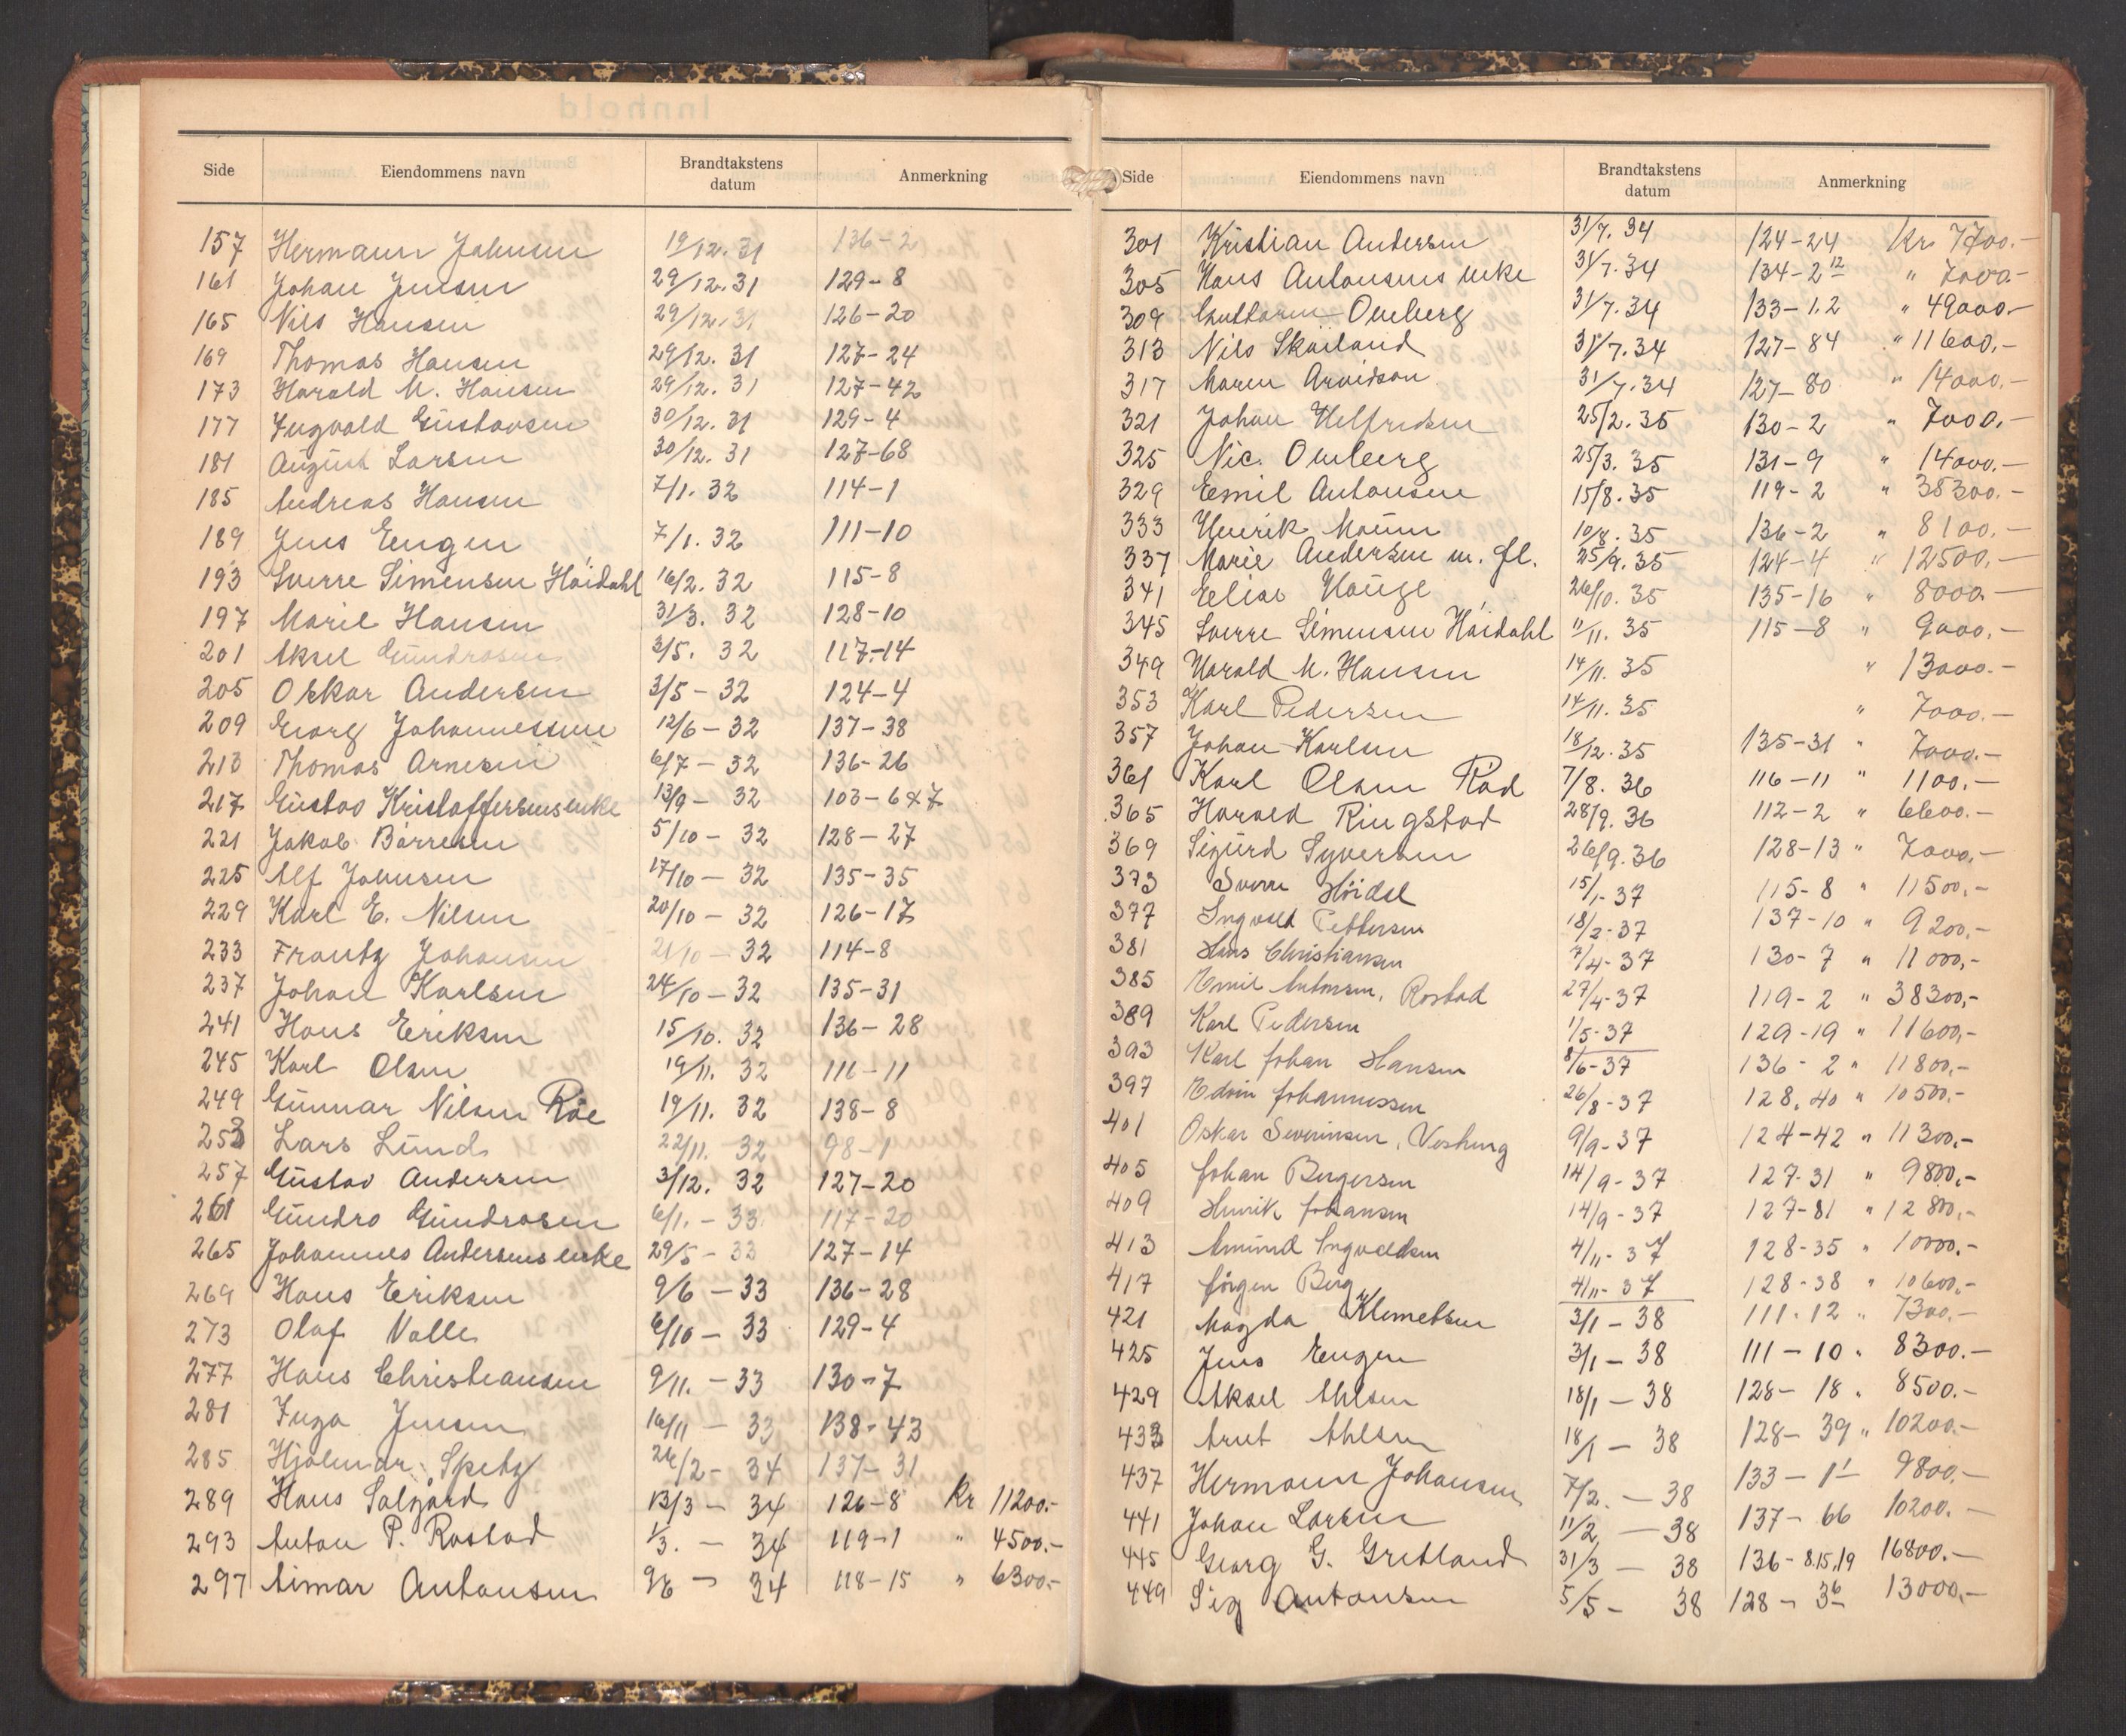 Side Eiendommens navn Brandtakstens datum Anmerkning
157 Hermann Johnsen 19/12. 31 136-2
161 Johan Jensen 29/12. 31 129-8
165 Nils Hansen 29/12. 31 126-20
169 Thomas Hansen 29/12. 31 127-24
173 Harald M. Hansen 29/12. 31 127-42
177 Ingvald Gustavsen 30/12. 31 129-4
181 August Larsen 30/12. 31 127-68
185 Andreas Hansen 7/1. 32 114-1
189 Jens Engen 7/1. 32 111-10
193 Sverre Simensen Høidahl 16/2. 32 115-8
197 Marie Hansen 31/3. 32 128-10
201 Aksel Gundrosen 3/5. 32 117-14
205 Oskar Andersen 3/5 - 32 124-4
209 Georg Johannessen 12/6 - 32 137-38
213 Thomas Arnesen 6/7 - 32 136-26
217 Gustav Kristoffersens enke 13/9 - 32 103-6 & 7
221 Jakob Børresen 5/10 - 32 128-27
225 Alf Johnsen 17/10 - 32 135-35
229 Karl E. Nilsen 20/10 - 32 126-17
233 Frantz Johansen 21/10 - 32 114-8
237 Johan Karlsen 24/10 - 32 135-31
241 Hans Eriksen 15/10. 32 136-28
245 Karl Olsen 19/11. 32 116-11
249 Gunnar Nilsen Røe 19/11. 32 138-8
253 Lars Lund 22/11. 32 98-1
257 Gustav Andersen 3/12. 32 127-20
261 Gundro Gundrosen 6/1. - 33 117-20
265 Johannes Andersens enke 29/5 - 33 127-14
269 Hans Eriksen 9/6 - 33 136-28
273 Olaf Valle 6/10 - 33 129-4
277 Hans Christiansen 9/11. - 33 130-7
281 Inga Jensen 16/11 - 33 138-43
285 Hjalmar Spetz 26/2 - 34 137-31
289 Hans Solgård 13/3 - 34 126-8 Kr 11200.-
293 Anton P. Rostad 1/3. - 34 119-1 " 4500.-
297 Aimar Antonsen 9/6 - 34 118-15 " 6300.-
Side Eiendommens navn Brandtakstens datum Anmerkning
301 Kristian Andersen 31/7. 34 124-24 Kr. 7700.-
305 Hans Antonsens enke 31/7. 34 134-2 12 " 7000.-
309 Guttorm Omberg 31/7. 34 133-1.2 " 49000.-
313 Nils Skåiland 31/7. 34 127-84 " 11600.-
317 Maren Arvidson 31/7. 34 127-80 " 14000.-
321 Johan Helfredsen 25/2. 35 130-2 " 7000.-
325 Nic. Omberg 25/3. 35 131-9 " 14000.-
329 Emil Antonsen 15/8. 35 119-2 " 38300.-
333 Henrik Maum 10/8. 35 136-2 " 8100.-
337 Marie Andersen m. fl. 25/9. 35 124-4 " 12500.-
341 Elise Hauge 26/10. 35 135-16 " 8000.-
345 Sverre Simensen Høidahl 11/11. 35 115-8 " 9000.-
349 Harald M. Hansen 14/11. 35 " 13000.-
353 Karl Pedersen 14/11. 35 " 7000.-
357 Johan Karlsen 18/12. 35 135-31 " 7000.-
361 Karl Olsen Rød 7/8. 36 116-11 " 1100.-
365 Harald Ringstad 28/9. 36 112-2 " 6600.-
369 Sigurd Syversen 26/9. 36 128-13 " 7000.-
373 Sverre Høidal 15/1-37 115-8 " 11500,-
377 Ingvald Pettersen 18/2-37 137-10 " 9200.-
381 Hans Christiansen 7/4-37 130-7 " 11000,-
385 Emil Antonsen, Rostad 27/4-37 119-2 " 38300,-
389 Karl Pedersen 1/5-37 129-19 " 11600,-
393 Karl Johan Hansen 8/6-37 136-2 " 11800,-
397 Edvin Johannessen 26/8-37 128.40 " 10500.-
401 Oskar Severinsen, 9/9-37 124-42 " 11300,-
405 Johan Bergersen 14/9-37 127-31 " 9800,-
409 Henrik Johansen 14/9-37 127-81 " 12800,-
413 Amund Ingvaldsen 4/11-37 128-35 " 10000.-
417 Jørgen Berg 4/11-37 128-38 " 10600,-
421 Magda Klemetsen 3/1 - 38 111.12 " 7300.-
425 Jens Engen 3/1 - 38 111-10 " 8300.-
429 Aksel Ahlsen 18/1 - 38 128-18 " 8500.-
433 Arnt Ahlsen 18/1 - 38 128-39 " 10200.-
437 Hermann Johansen 7/2. - 38 133-1 1 9800.-
441 Johan Larsen 11/2 - 38 137-66 10200.-
445 Georg G. Gretland 31/3 - 38 136-8,15,19 16800.-
449 Sig Antonsen 5/5 - 38 128-36 13000.-